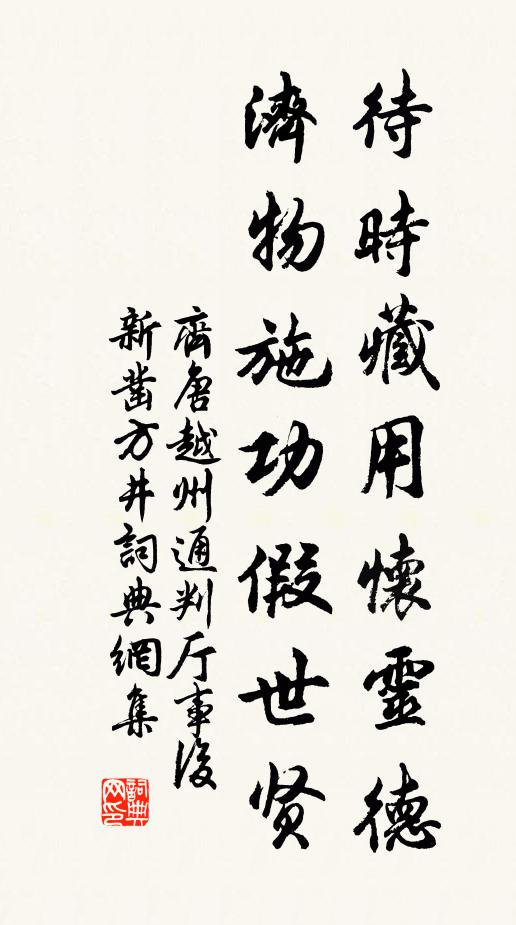 待時藏用懷靈德
濟物施功假世贤
齊唐越州通判厅事後
新凿方井詞典網集
詞典网印